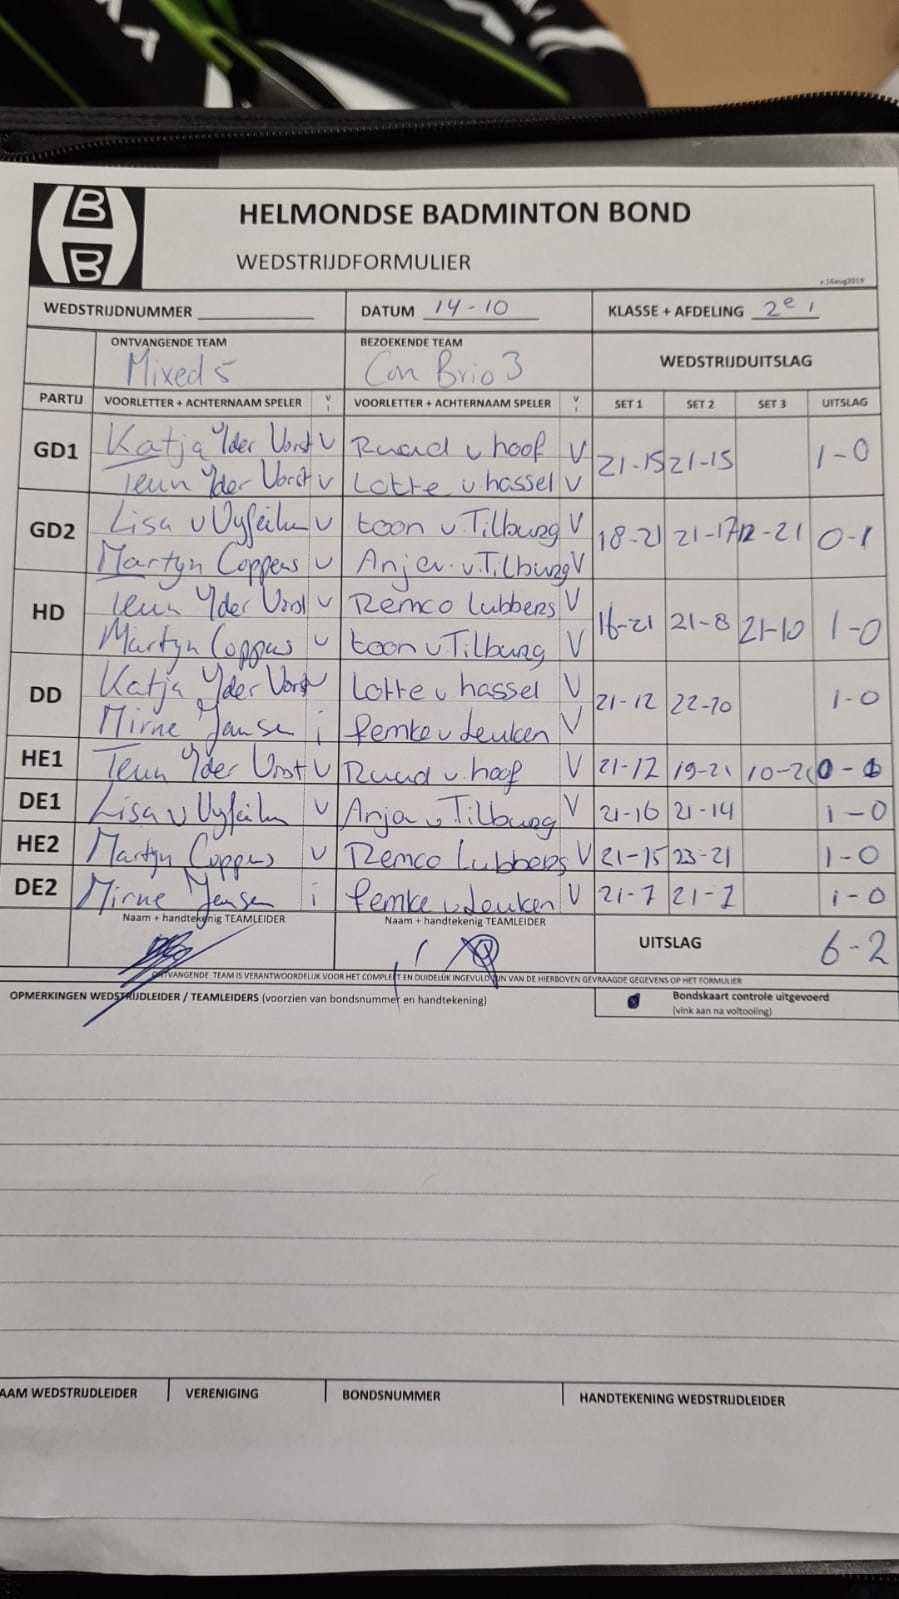 B
B
HELMONDSE BADMINTON BOND
WEDSTRIJDFORMULIER
v.16aug2019
WEDSTRIJDNUMMER DATUM 14-10 KLASSE + AFDELING 2e 1
ONTVANGENDE TEAM BEZOEKENDE TEAM WEDSTRIJDUITSLAG
Mixed 5 Con Brio 3
PARTIJ VOORLETTER + ACHTERNAAM SPELER V I VOORLETTER + ACHTERNAAM SPELER V I SET 1 SET 2 SET 3 UITSLAG
GD1 Katja v/der Vorst v Ruud v hoof V 21-15 21-15 1-0
Teun v/der Vorst v Lotte v hassel v
GD2 Lisa v v toon v Tilburg V 18-21 21-17 12-21 0-1
Martyn Coppens v Anja v. Tilburg V
HD Teun v/der Vorst v Remco Lubbers V 16-21 21-8 21-10 1-0
Martyn Coppens v toon v Tilburg V
DD Katja v/der Vorst v Lotte v hassel V 21-12 22-20 1-0
Mirne Jansen i femke v Leuken V
HE1 Teun v/der Vorst v Ruud v hoof V 21-12 19-21 0-1
DE1 Lisa v v Anja v Tilburg V 21-16 21-14 1-0
HE2 Martyn Coppens v Remco Lubbers V 21-15 23-21 1-0
DE2 Mirne Jansen i femke v Leuken V 21-7 21-7 1-0
Naam + handtekenig TEAMLEIDER Naam + handtekenig TEAMLEIDER
UITSLAG 6-2
ONTVANGENDE TEAM IS VERANTWOORDELIJK VOOR HET COMPLEET EN DUIDELIJK INGEVULD ZIJN VAN DE HIERBOVEN GEVRAAGDE GEGEVENS OP HET FORMULIER
OPMERKINGEN WEDSTRIJDLEIDER / TEAMLEIDERS (voorzien van bondsnummer en handtekening) Bondskaart controle uitgevoerd
(vink aan na voltooiing)
AAM WEDSTRIJDLEIDER VERENIGING BONDSNUMMER HANDTEKENING WEDSTRIJDLEIDER